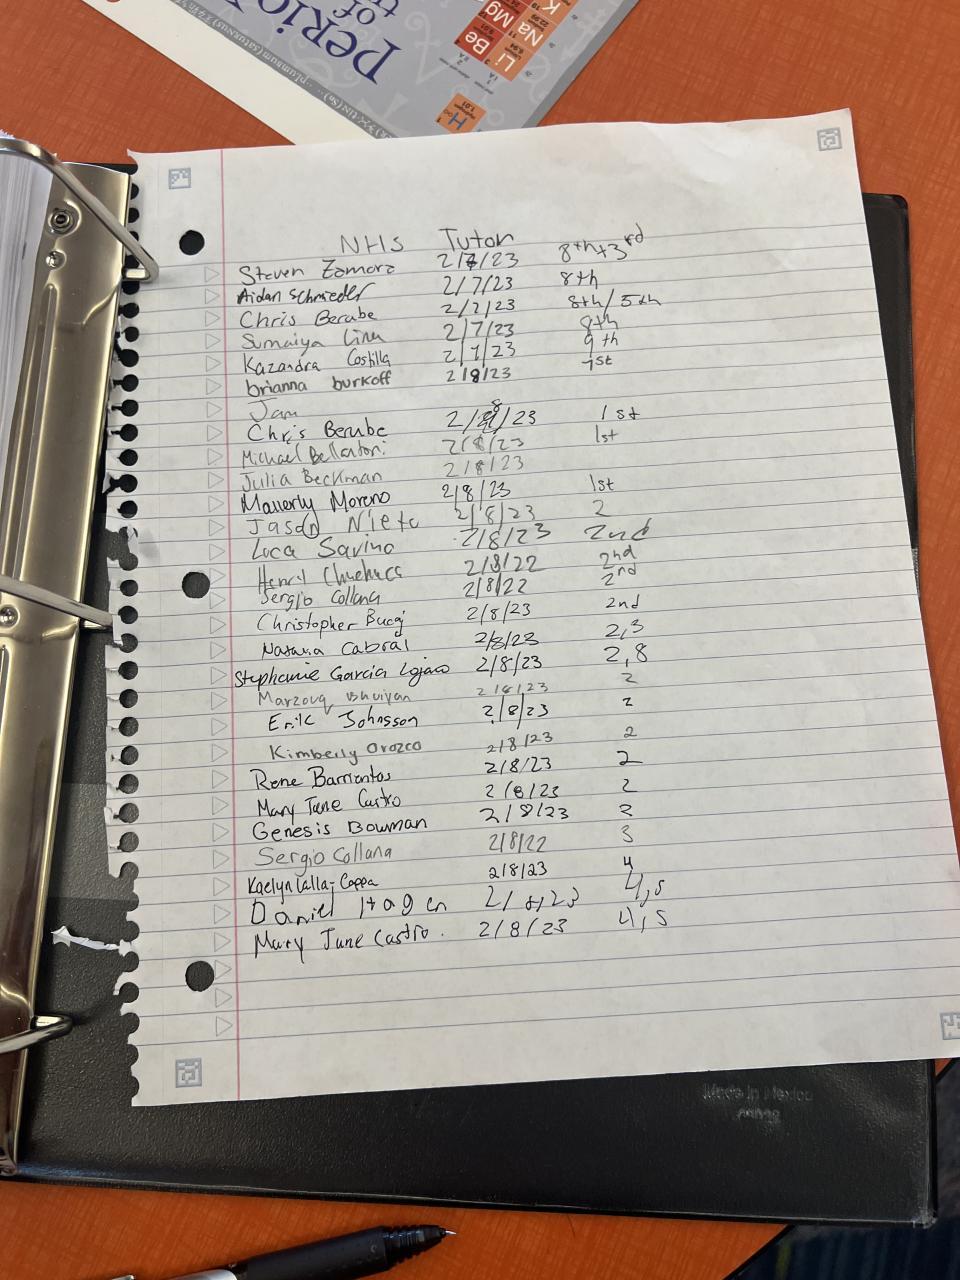 perio
of
K
Na Mg
Li Be
H
1.01
NHS Tutor
Steven Zamora 2/7/23 8th+3rd
Aidan Schmieder 2/7/23 8th
Chris Berube 2/7/23 8th/5th
Sumaiya 2/7/23 8th
Kazandra Costilla 2/7/23 9th
brianna burkoff 2/8/23 1st
Jam
Chris Berube 2/8/23 1st
Michael Bellantoni 2/8/23 1st
Julia Beckman 2/8/23
Mauerly Moreno 2/8/23 1st
Jason Nieto 2/8/23 2
Luca Savino 2/8/23 2nd
2/8/22 2nd
Sergio Collana 2/8/22 2nd
Christopher 2/8/23 2nd
Natalia Cabral 2/8/23 2,3
Stephanie Garcia Lojano 2/8/23 2,8
Marzouq Bhuiyan 2/8/23 2
Erik Johnsson 2/8/23 2
Kimberly Orozco 2/8/23 2
Rene Barrientos 2/8/23 2
Mary Jane Castro 2/8/23 2
Genesis Bowman 2/8/23 2
Sergio Collana 2/8/22 3
Kaelyn Calla-Ccppa 2/8/23 4
Daniel Hagen 2/8/23 4,5
Mary Jane Castro. 2/8/23 4,5
Made in Mexico